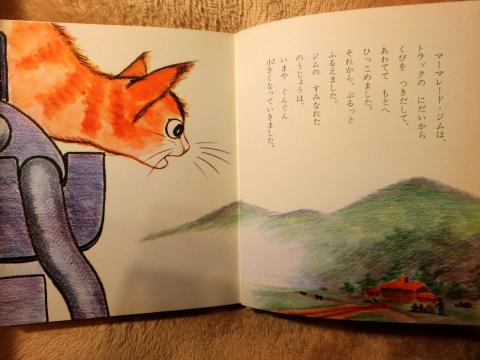 マーマレード・ジムは、
トラックの にだいから
くびを つきだして、
あわてて もとへ
ひっこめました。
それから、ぶるっと
ふるえました。
ジムの すみなれた
のうじょうは、
いまや ぐんぐん
小さくなっていきました。